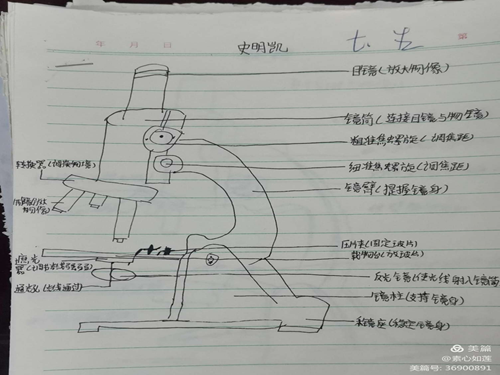 年 月 日
史明凯 七.五 第
目镜(放大物像)
镜筒(连接目镜与物镜)
粗准焦螺旋(调焦距)
细准焦螺旋(调焦距)
镜臂(握镜身)
转换器(调换物镜)
物镜(放大物像)
压片夹(固定玻片)
载物台(放玻片)
遮光器(调节光线强弱)
通光孔(光线通过)
反光镜(使光线射入镜筒)
镜柱(支持镜身)
镜座(稳定镜身)
美篇
@素心如莲
美篇号: 36900891